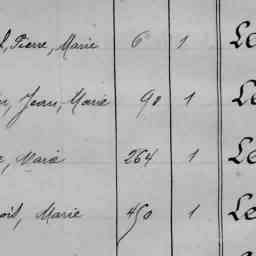 Pierre, Marie 6 1 Le
Jean, Marie 90 1 Le
Marie 264 1 Le
Marie 450 1 Le